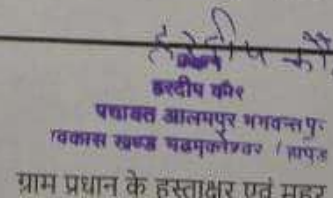 हरदीप कौर
हरदीप कौर
पंचायत आलमपुर भगवन्तपुर
विकास खण्ड गढमुक्तेश्वर (हापुड
ग्राम प्रधान के हस्ताक्षर एवं मुहर